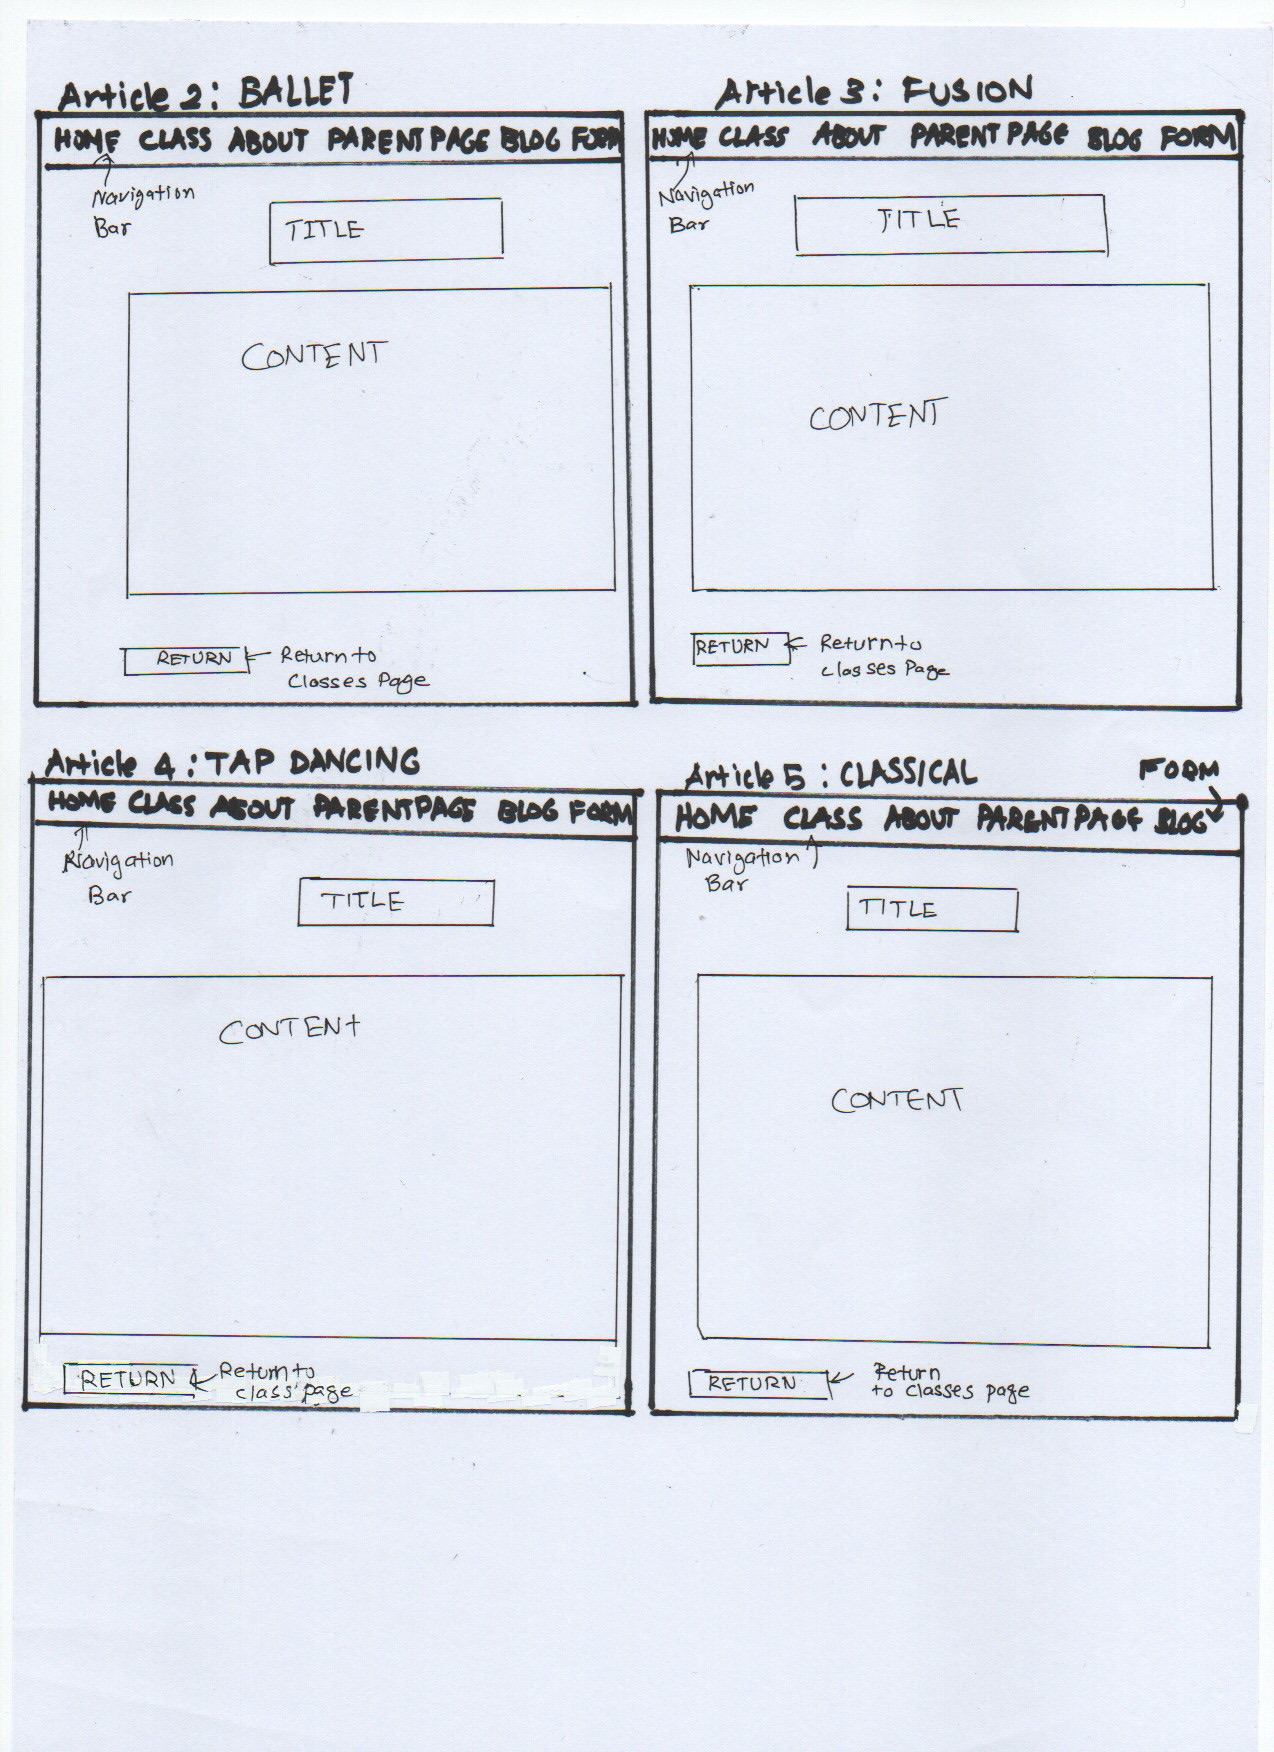 Article 2: BALLET
HOME CLASS ABOUT PARENT PAGE BLOG FORM
Navigation
Bar
TITLE
CONTENT
RETURN
Return to
Classes Page
Article 3: FUSION
HOME CLASS ABOUT PARENT PAGE BLOG FORM
Navigation
Bar
TITLE
CONTENT
RETURN
Return to
Classes Page
Article 4: TAP DANCING
HOME CLASS ABOUT PARENT PAGE BLOG FORM
Navigation
Bar
TITLE
CONTENt
RETURN
Return to
class page
Article 5: CLASSICAL
FORM
HOME CLASS ABOUT PARENT PAGE BLOG
Navigation
Bar
TITLE
CONTENT
RETURN
Return
to classes page